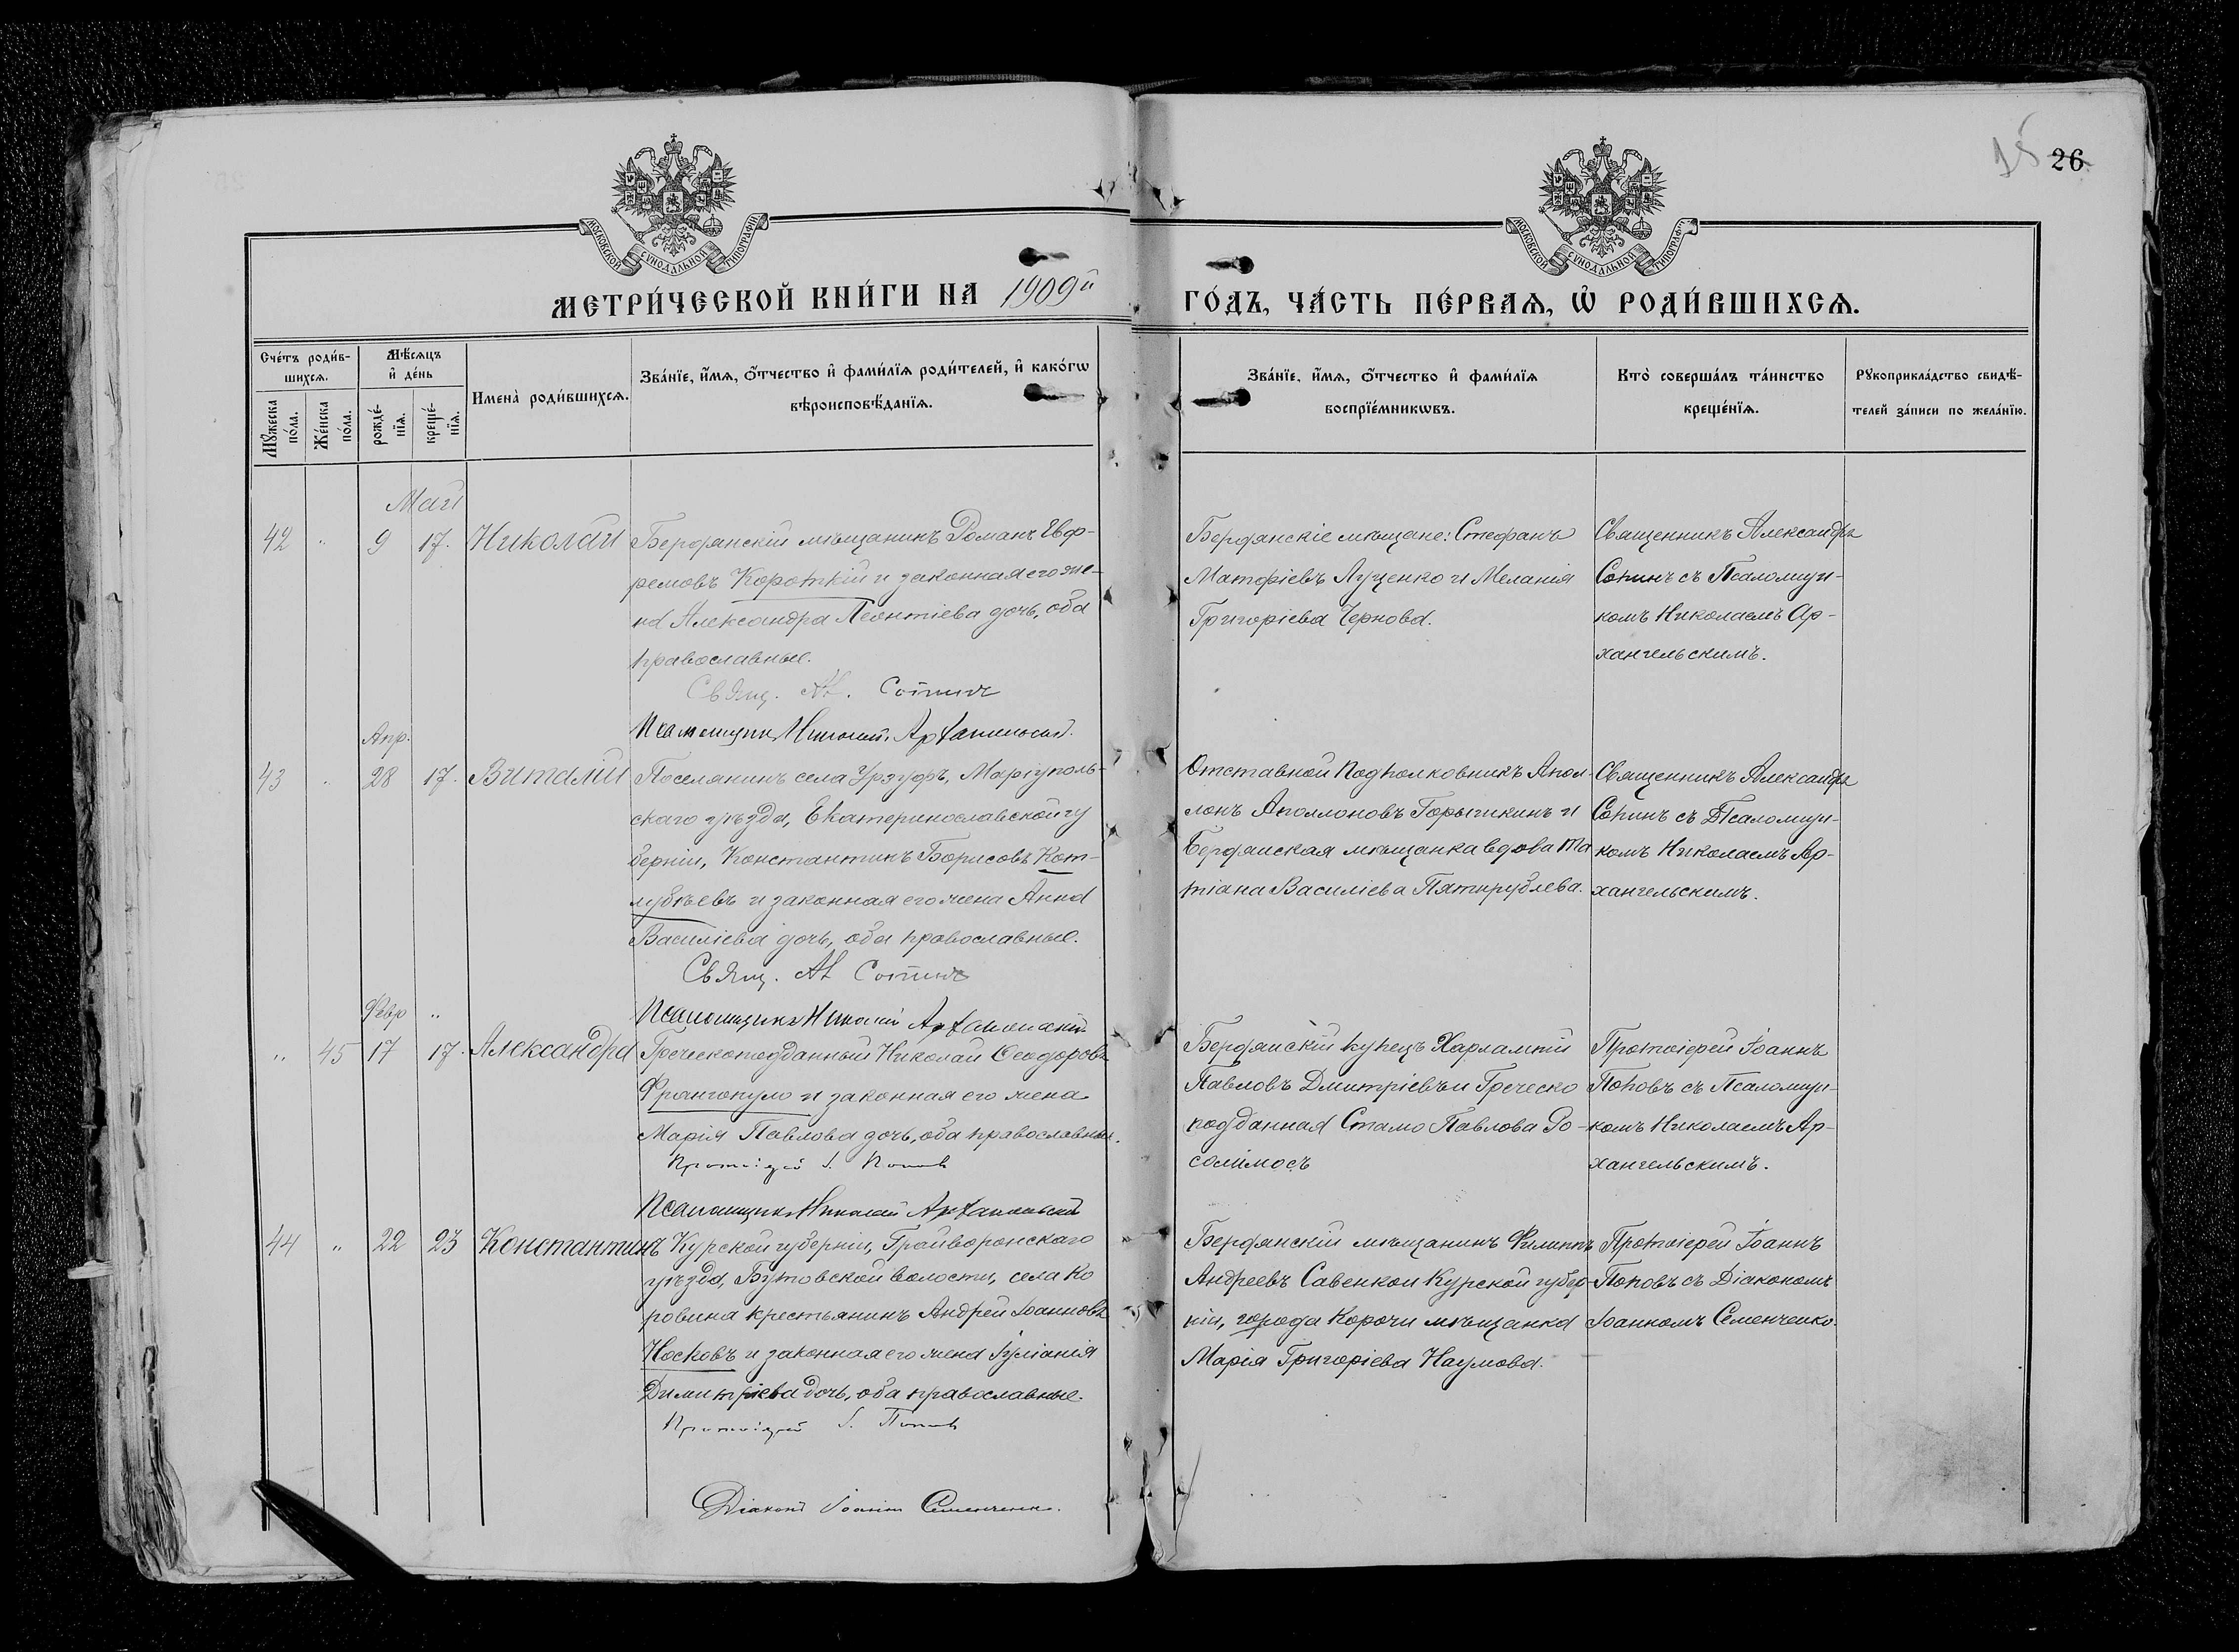 15 26.
МОСКОВСКОЙ СѴНОДАЛЬНОЙ ТИПОГРАФІИ
МОСКОВСКОЙ СѴНОДАЛЬНОЙ ТИПОГРАФІИ
МЕТРИ́ЧЕСКОЙ КНИ́ГИ НА 1909й ГО́ДЪ, ЧА́СТЬ ПЕ́РВАѦ, Ѡ РОДИ́ВШИХСѦ.
Сче́тъ роди́в-
шихсѧ.
Мѣ́сѧцъ
и҆ де́нь
Мꙋ́жеска по́ла.
Же́нска по́ла.
рожде́-
нїѧ.
креще́-
нїѧ.
Имена̀ роди́вшихсѧ.
Зва́нїе, и҆́мѧ, ѻ҆́тчество и҆ фами́лїѧ роди́телей, и҆ како́гѡ
вѣроисповѣ́данїѧ.
Зва́нїе, и҆́мѧ, ѻ҆́тчество и҆ фами́лїѧ
воспрїе́мникѡвъ.
Кто̀ соверша́лъ та́инство
креще́нїѧ.
Рꙋкоприкла́дство свидѣ́-
телей за́писи по жела́нїю.
Май
42 " 9 17. Николай
Бердянскій мѣщанинъ Романъ Евф-
ремовъ Короткій и законная его же-
на Александра Леонтіева дочь, оба
православные.
Свящ. Ал. Сопинъ
Псаломщикъ Николай Архангельскій.
Бердянскіе мѣщане: Стефанъ
Матфіевъ Луценко и Меланія
Григоріева Чернова.
Священникъ Александръ
Сопинъ съ Псаломщи-
комъ Николаемъ Ар-
хангельскимъ.
Апр.
43 " 28 17. Виталій
Поселянинъ села Урзуфъ, Маріуполь-
скаго уѣзда, Екатеринославской гу
берніи, Константинъ Борисовъ Кот-
лубѣевъ и законная его жена Анна
Василіева дочь, оба православные.
Свящ. Ал Сопинъ
Псаломщикъ Николай Архангельскій
Отставной Подполковникъ Апол-
лонъ Аполлоновъ Горычкинъ и
Бердянская мѣщанка вдова Та
тіана Василіева Пятирублева.
Священникъ Александръ
Сопинъ съ Псаломщи-
комъ Николаемъ Ар-
хангельскимъ.
Февр "
" 45 17 17. Александра
Греческоподданный Николай Ѳеодоровъ
Франгопуло и законная его жена
Марія Павлова дочь, оба православные.
Протоіерей І. Поповъ
Псаломщикъ Николай Архангельскій
Бердянскій купецъ Харлампій
Павловъ Дмитріевъ и Греческо
подданная Стамо Павлова Ро-
солимосъ
Протоіерей Іоаннъ
Поповъ съ Псаломщи-
комъ Николаемъ Ар-
хангельскимъ.
44 " 22 23 Константинъ
Курской губерніи, Грайворонскаго
уѣзда, Бутовской волости, села Ко
ровина крестьянинъ Андрей Іоанновъ
Носковъ и законная его жена Іуліанія
Димитріева дочь, оба православные.
Протоіерей І. Поповъ
Діаконъ Іоаннъ Семенченко.
Бердянскій мѣщанинъ Филиппъ
Андреевъ Савенко и Курской губер-
ніи, города Корочи мѣщанка
Марія Григоріева Наумова.
Протоіерей Іоаннъ
Поповъ съ Діакономъ
Іоанномъ Семенченко.